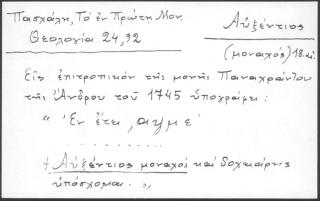 Πασχάλη, Τὸ ἐν Πρώτῃ Μον.
Θεολογία 24, 92
Αὐξέντιος
(μοναχός) 18. αἰ.
Εἰς ἐπιτροπικὸν τῆς μονῆς Παναχράντου
τῆς Ἄνδρου τοῦ 1745 ὑπογράφει:
“ Ἐν ἔτει, αψμε´
. . . . . . . . .
† Αὐξέντιος μοναχὸς καὶ δοχειάρης
ὑπόσχομαι. „